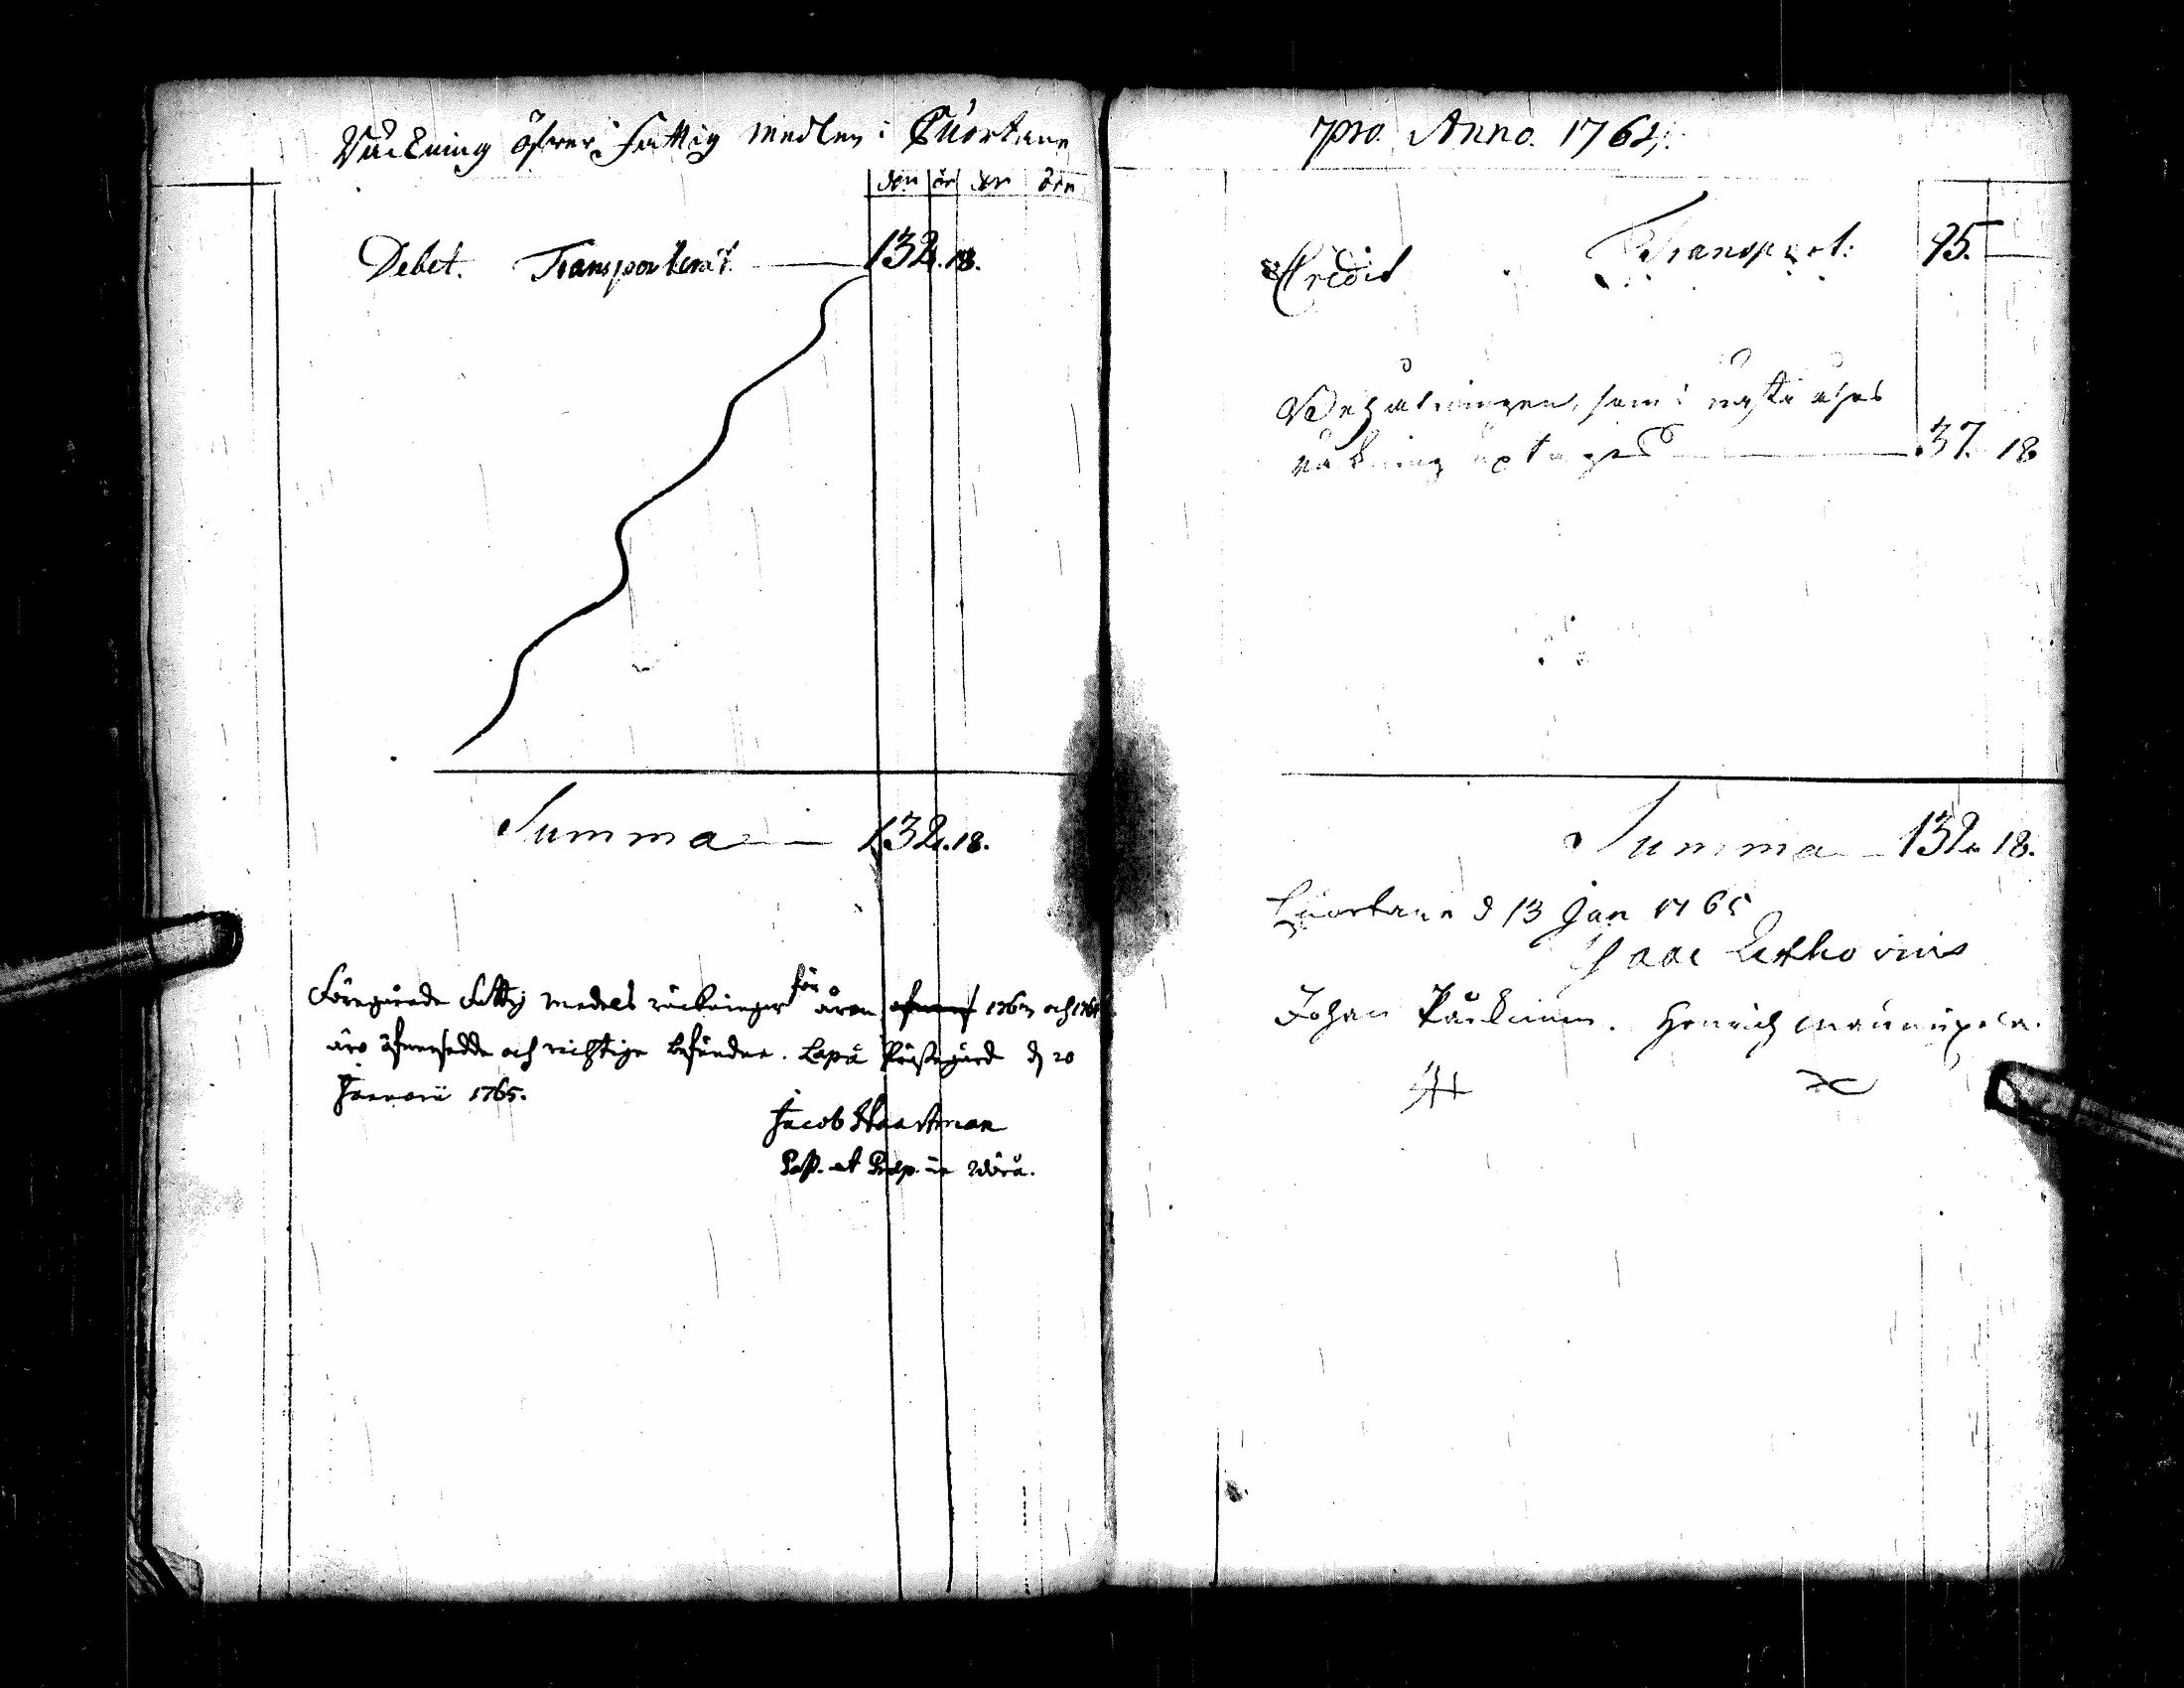 Räckning öfwer Fattig medlen i Cuortane
dlr ör dlr öre
Debet. Transporterat 132. 18.
Summa 132. 18.
Föregående Fattig medels räckningar för åren 1763 och 1764
äro öfwersedde och richtige befundne. Lapå Prästegård d 20
Januarii 1765.
Jacob Haartman
Past. et Præp. in Wörå.
pro. Anno. 1764.
Credit Transport: 95.
Behållningen, som i nästa åhrs
räkning uptages 37. 18
Summa 132. 18.
Cuortane d 13 Jan 1765
Isaac Lithovius
Johan Henrich